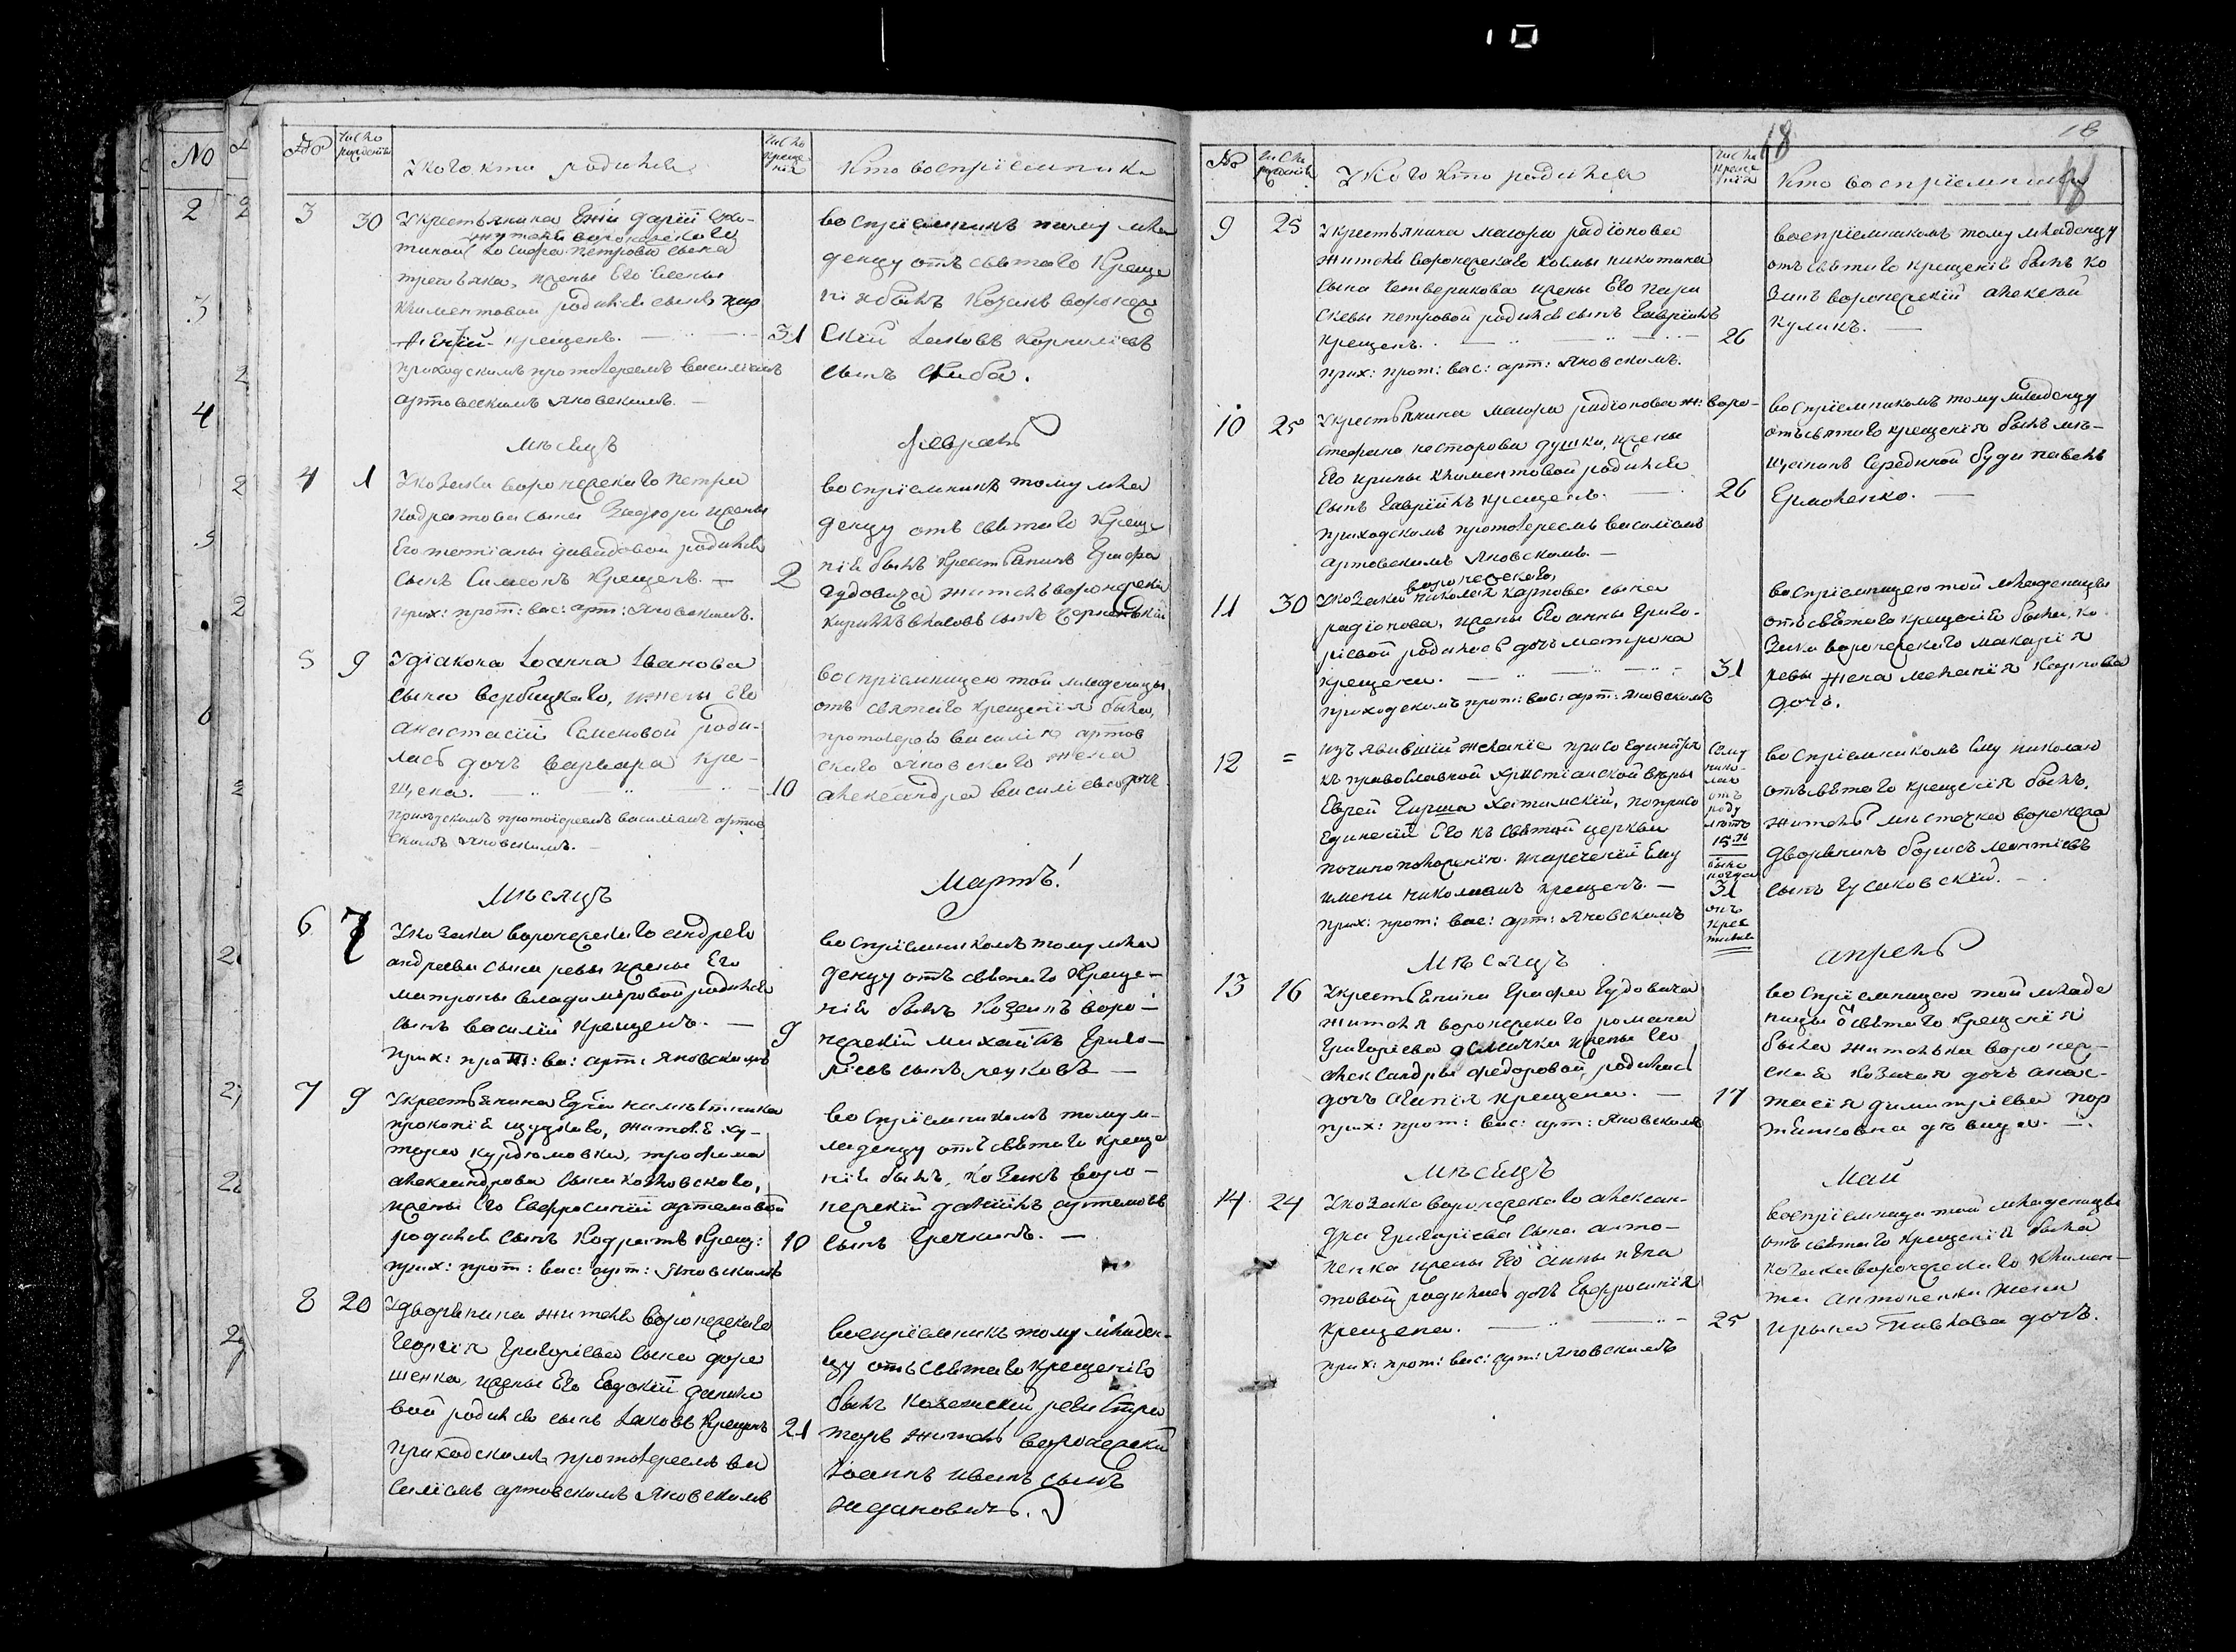 No
2
3
4
5
6
No
число рожденія
У кого кто родился
число креще
нія
Кто воспріемники
3 30
У крестьянина
жителя воронежскаго
Іосифа Петрова сына
треть яка, жены Его Елены
Климентовой родился сынъ
крещенъ. 31
приходскимъ протоіереемъ василіемъ
артовскимъ Яновскимъ.
воспріемникъ тому мла
денцу отъ святаго Креще
нія былъ Козакъ воронеж
скій Іаковъ Корниліевъ
сынъ Скиба.
мѣсяцъ
февраль
4 1
У козака воронежскаго петра
Кодратова сына жены
Его тетіаны давидовой родился
сынъ Симеонъ Крещенъ. — 2
прих: прот: вас: арт: Яновскимъ.
воспріемникъ тому мла
денцу отъ святаго Креще
нія былъ Крестьянинъ Графа
гудовича житель воронежскій
кирилъ власовъ сынъ
5 9
У діакона Іоанна Іванова
сына вербицкаго, жены Его
анастасіи Семеновой роди-
лась дочь варвара кре-
щена. 10
приходскимъ протоіереемъ василіемъ артов
скимъ Яновскимъ.
воспріемницею той младеницы
отъ святаго крещенія была,
протоіерея василія артов
скаго Яновскаго жена
александра василіева дочь
Мѣсяцъ
Мартъ!
6 7
У козака воронежскаго андрея
андреева сына ревы жены Его
матроны владиміровой родился
сынъ василій Крещенъ. — 9
прих: прот: ва: арт: Яновскимъ
воспріемникомъ тому мла
денцу отъ святаго Креще-
нія былъ Козакъ воро-
нежскій михаилъ Григо-
ріевъ сынъ леуковъ —
7 9
У крестьянина
прокопія щуцкаго, жителя ху-
тора курдюмовки, трофима
александрова сына козловскаго,
жены Его Евфросиніи артемовой
родился сынъ Кодратъ Крещ: 10
прих: прот: вас: арт: Яновскимъ
воспріемникомъ тому м-
ладенцу отъ святаго креще
нія былъ, Козакъ воро-
нежскій даніилъ артемовъ
сынъ Гречкинъ. —
8 20
У дворянина жителя воронежскаго
Георгія Григоріева сына доро
шенка, жены Его Евдокіи данило
вой родился сынъ Іаковъ Крещенъ 21
приходскимъ протоіереемъ ва
силіемъ артовскимъ Яновскимъ
воспріемникъ тому младен-
цу отъ святаго крещенія
былъ колежскій регистра
торъ житель воронежскій
Іоаннъ сынъ
ждановичъ.
18
18
No
число рожденія
У Кого Кто родился
число креще
нія
Кто воспріемники
9 25
У крестьянина маіора радіонова
жителя воронежскаго косьмы никитина
сына четверикова жены Его пара
скевы петровой родился сынъ Гавріилъ
крещенъ. 26
прих: прот: вас: арт: Яновскимъ.
воспріемникомъ тому младенцу
отъ святаго крещенія былъ ко
закъ воронежскій алексѣй
куликъ. —
10 25
У крестьянина маіора радіонова ж: воро-
стефана несторова душки, жены
Его ирины климентовой родился
сынъ Гавріилъ крещенъ. 26
приходскимъ протоіереемъ василіемъ
артовскимъ Яновскимъ. —
воспріемникомъ тому младенцу
отъ святаго крещенія былъ мѣ-
щанинъ Середкной буди павелъ
Ермоленко. —
11 30
У козака воронежскаго николая карпова сына
радіонова, жены Его анны Григо-
ріевой родилась дочь матрона
крещена. 31
приходскимъ прот: вас: арт: Яновскимъ
воспріемницею той младеницы
отъ святаго крещенія была, ко-
зака воронежскаго макарія
ревы жена меланія Карпова
дочь.
12 =
изъявившій желаніе присоединиться
къ православной христіанской вѣры
Еврей Гирша Хатимскій, по присо
единеніи Его къ святой церкви
по чиноположенію. нареченъ Ему
имени николаемъ крещенъ. —
прих: прот: вас: арт: Яновскимъ
сему
нико-
лаю
отъ
роду
лѣтъ
15ть
было
когда
31
онъ
крес
тился
воспріемникомъ Ему николаю
отъ святаго крещенія былъ,
житель мѣстечка воронежа
дворянинъ борисъ леонтіевъ
сынъ гусаковскій. —
Мѣсяцъ
апрель
13 16
У крестьянина Графа Гудовича
жителя воронежскаго романа
Григоріева жены Его
александры федоровой, родилась
дочь агапія крещена. — 17
прих: прот: вас: арт: Яновскимъ
воспріемницею той младе
ницы отъ святаго крещенія
была жителька воронеж-
ская козачая дочь анас-
тасія димитріева
дѣвица. —
мѣсяцъ
май
14 24
У козака воронежскаго алексан-
дра Григоріева сына анто-
ненка жены Его анны
родилась дочь Евфросинія
крещена. 25
прих: прот: вас: арт: Яновскимъ
воспріемница той младеницы
отъ святаго крещенія была
козака воронежскаго климен-
та антоненка жена
ирына павлова дочь.